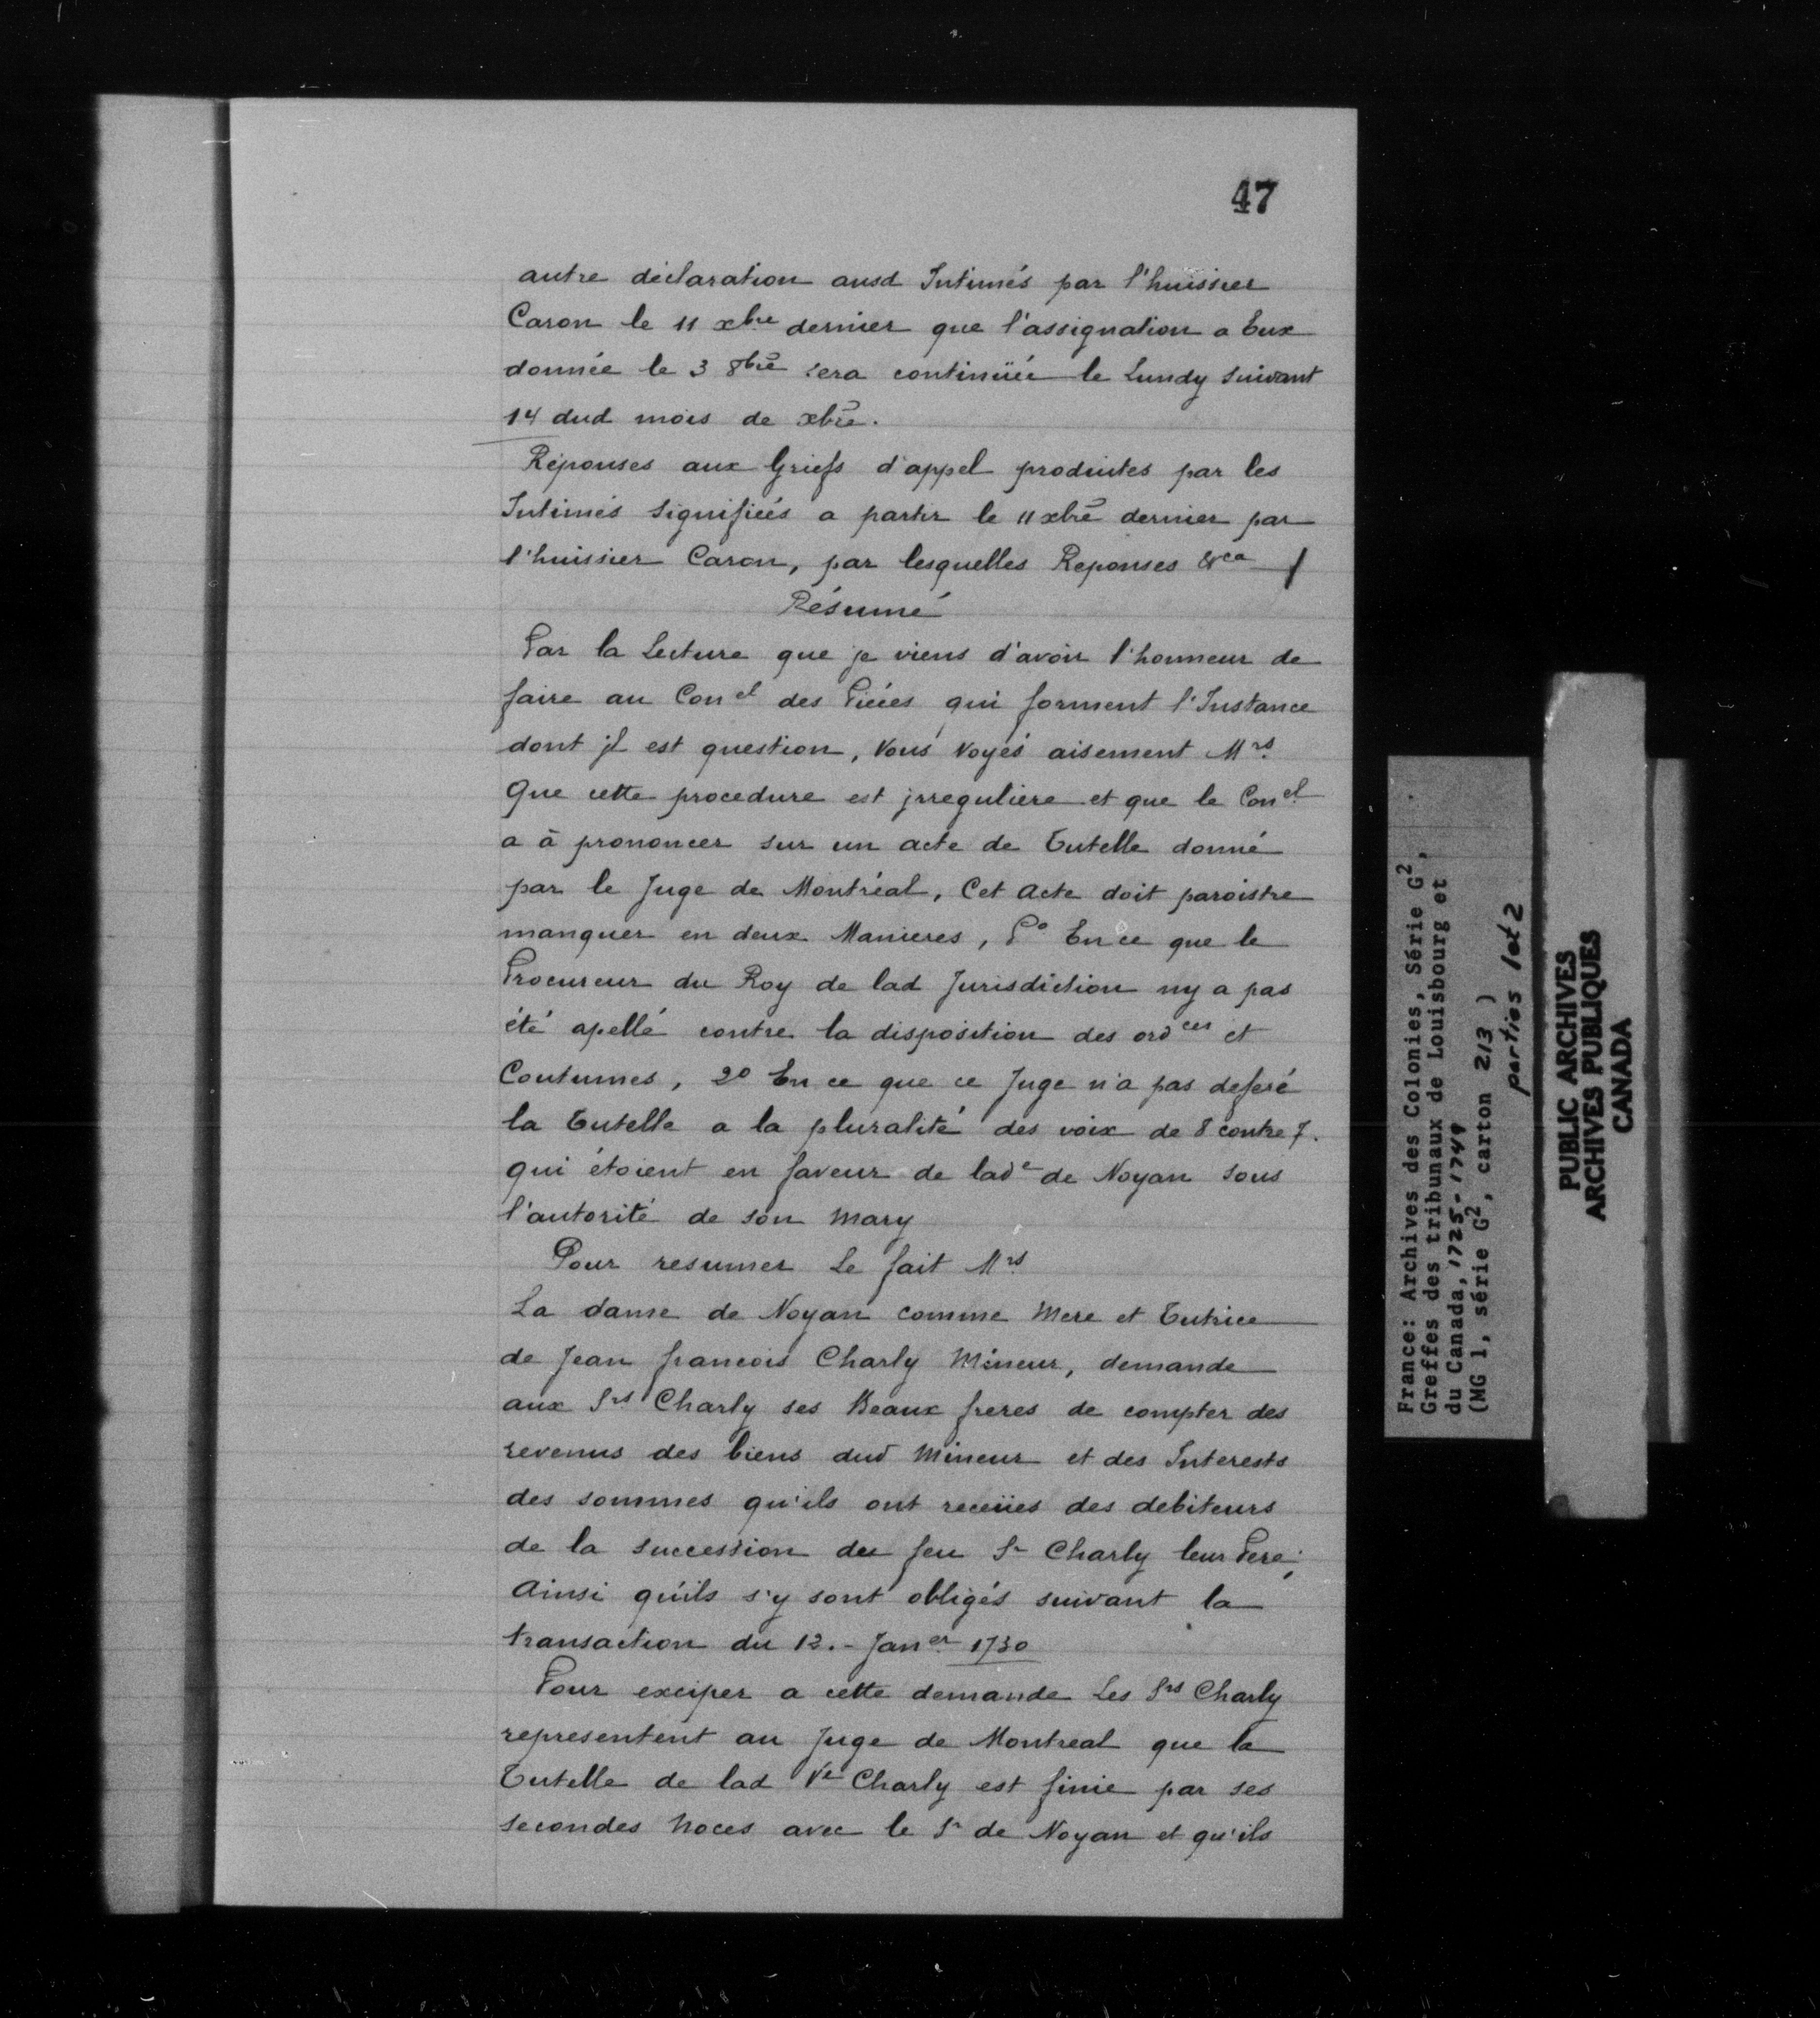 47
autre déclaration ausd Intimés par l'huissier
Caron le 11 xbre dernier que l'assignation a Eux
donnée le 3 8bre sera continüée le Lundy suivant
14 dud mois de xbre.
Réponses aux Griefs d'appel produites par les
Intimés Signifiées a partir le 11 xbre dernier par
l'huissier Caron, par lesquelles Reponses &ca
Résumé
Par la Lecture que je viens d'avoir l'honneur de
faire au Conel des Piéces qui forment l'Instance
dont jl est question, Vous Voyés aisement Mrs.
Que cette procedure est jrreguliere et que le Conel
a à prononcer sur un acte de Tutelle donné
par le Juge de Montréal, Cet Acte doit paroistre
manquer en deux Manieres, Po En ce que le
Procureur du Roy de lad Jurisdiction ny a pas
été apellé contre la disposition des ordces et
Coutumes, 2o En ce que ce Juge n'a pas deferé
la Tutelle a la pluralité des voix de 8 contre 7.
qui étoient en faveur de lade de Noyan sous
l'autorité de son Mary
Pour resumer Le fait Mrs
La dame de Noyan comme Mere et Tutrice
de Jean francois Charly Mineur, demande
aux Srs Charly ses Beaux freres de compter des
revenus des biens dud Mineur et des Interests
des sommes qu'ils ont receües des debiteurs
de la succession du feu Sr Charly leur Pere,
Ainsi qu'ils s'y sont obligés suivant la
transaction du 12.- Janer 1730
Pour exciper a cette demande Les Srs Charly
representent au Juge de Montreal que la
Tutelle de lad Ve Charly est finie par ses
secondes Noces avec le Sr de Noyan et qu'ils
France: Archives des Colonies, Série G2,
Greffes des tribunaux de Louisbourg et
du Canada, 1725-1749
(MG 1, série G2, carton 213 )
parties 1 et 2
PUBLIC ARCHIVES
ARCHIVES PUBLIQUES
CANADA